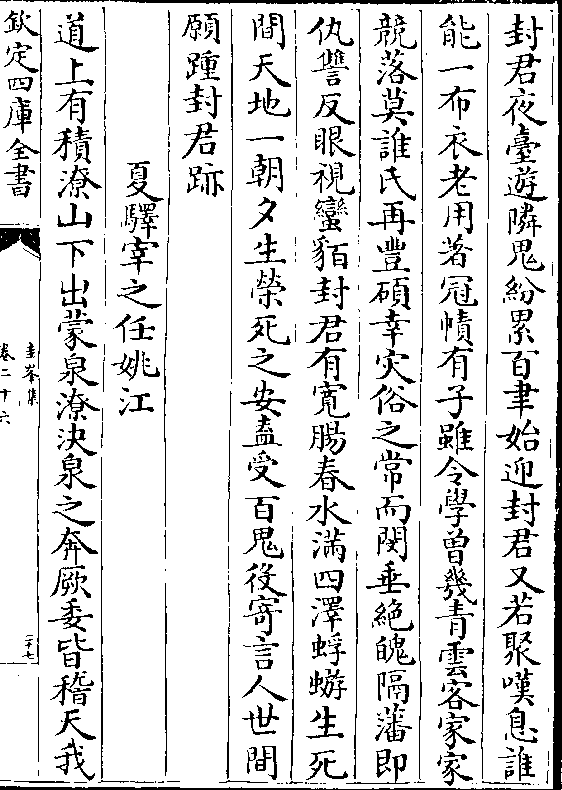 封君夜臺遊隣鬼紛累百聿始迎封君又若聚嘆息誰
能一布衣老用著冠幘有子雖令學曾幾青雲客家家
競落莫誰氏再豐碩幸灾俗之常而閔垂絶醜隔藩即
仇讐反眼視蠻貊封君有寛腸春水滿四澤蜉蝣生死
間天地一朝夕生榮死之安盍受百鬼役寄言人世間
願踵封君跡
夏驛宰之任姚江
道上有積潦山下出蒙泉潦決泉之奔厥委皆稽天我
欽定四庫全書
圭峯集
卷二十六
二十七